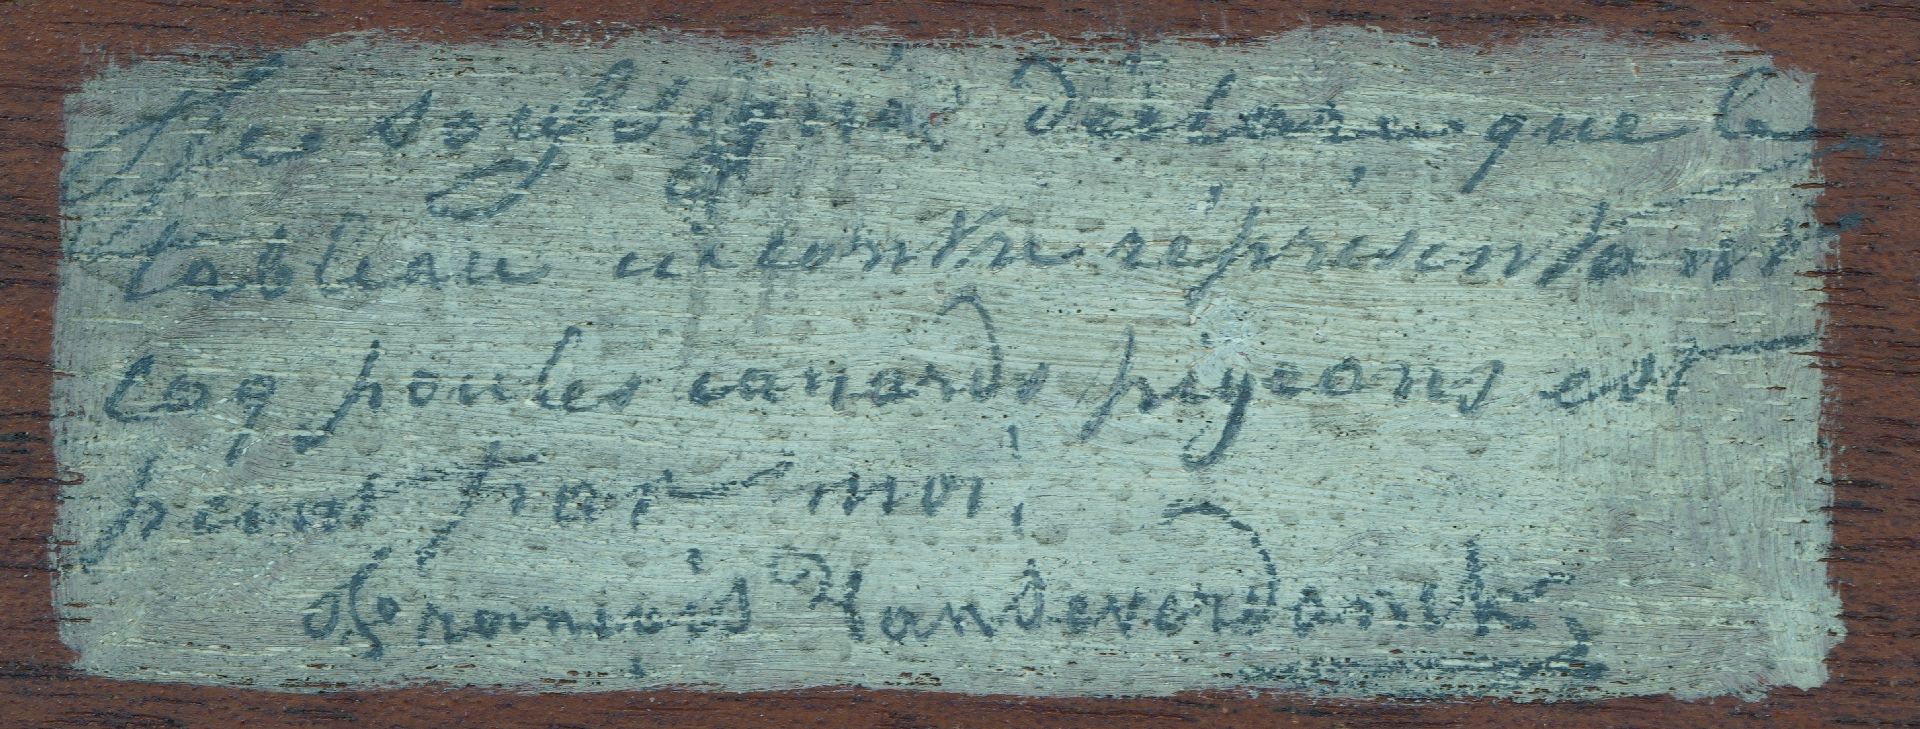 Je soussigné déclare que le
tableau ci contre représentant
coq poules canards pigeons est
peint par moi,
François Vandeverdonck